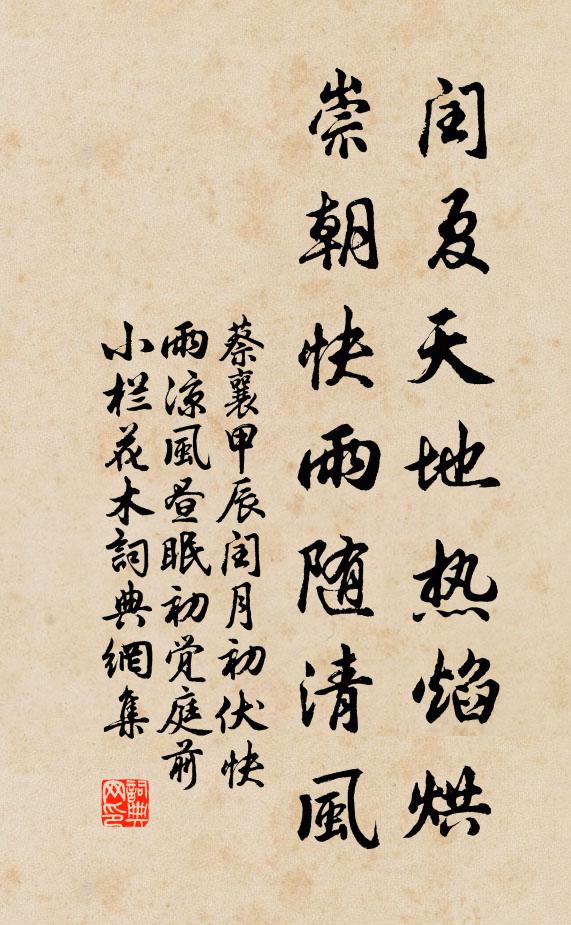 闰夏天地热焰烘
崇朝快雨随清風
蔡襄甲辰闰月初伏快
雨凉風昼眠初觉庭前
小栏花木詞典網集
詞典网印